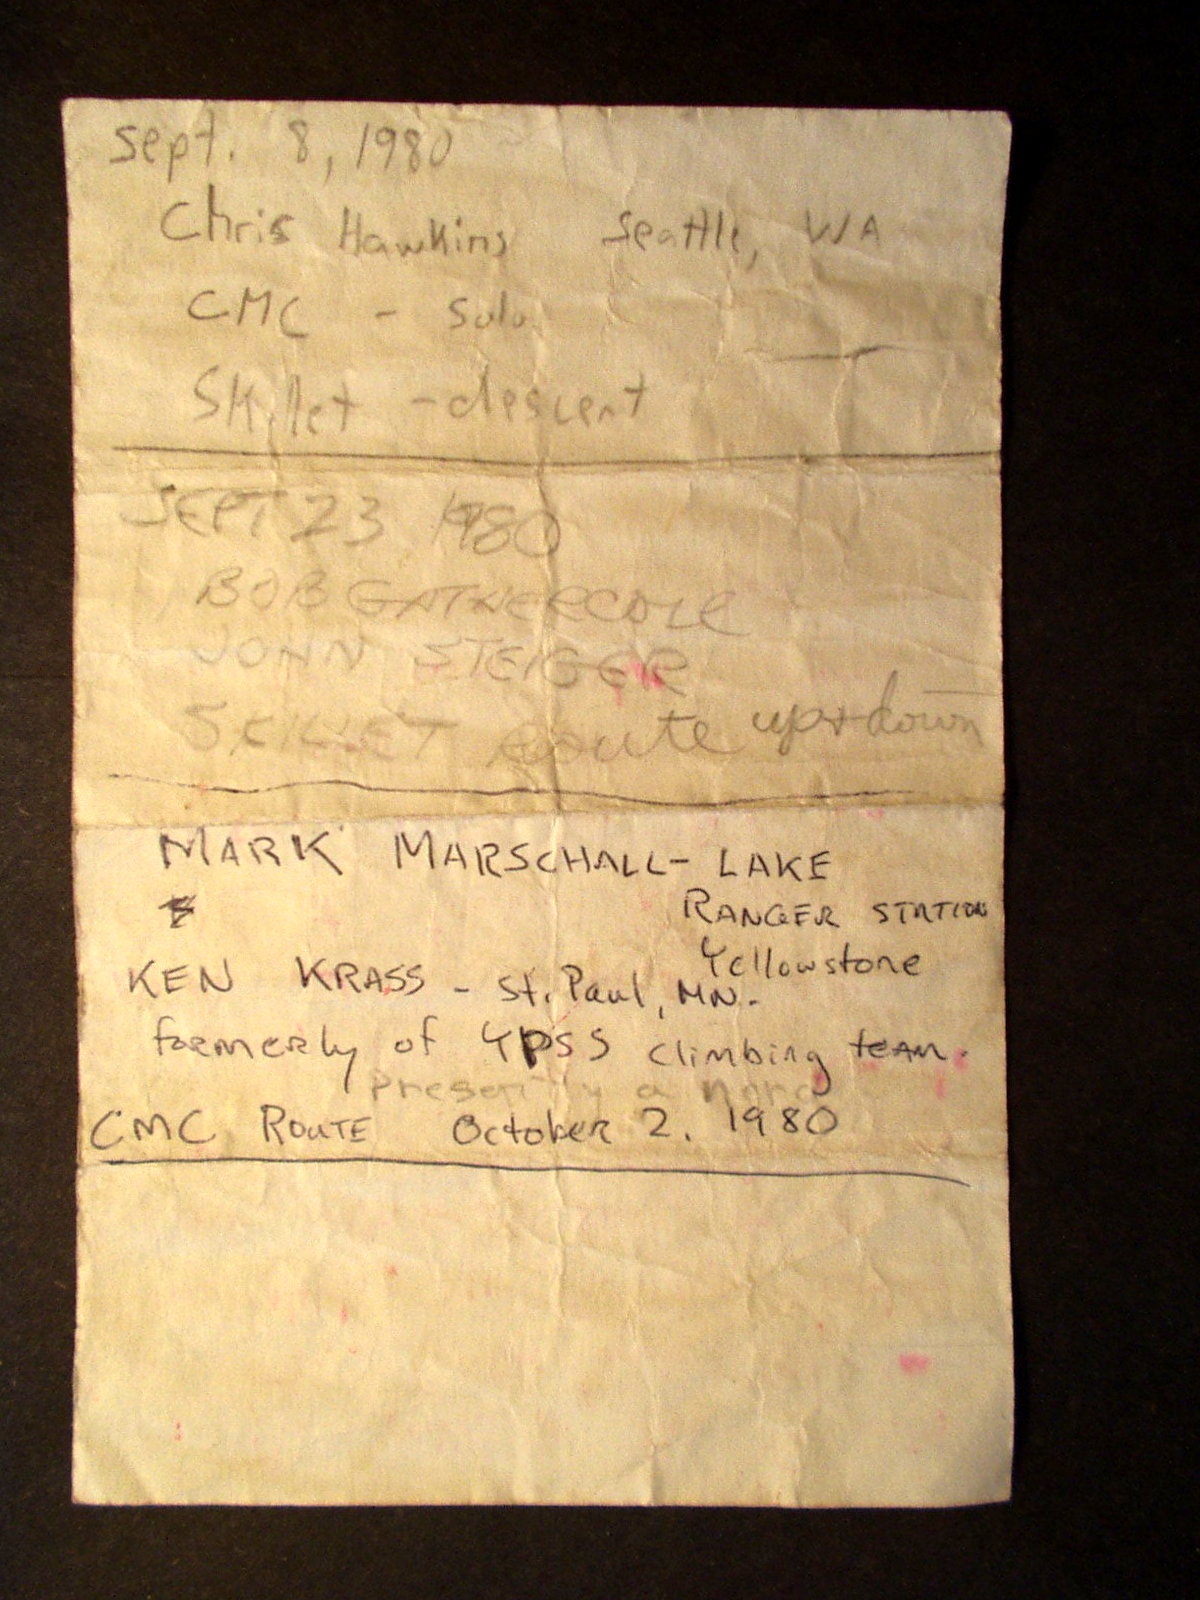 Sept. 8, 1980
Chris Hawkins Seattle, WA
CMC - Solo
Skillet - descent
SEPT 23 1980
BOB GATHERCOLE
JOHN STEIGER
SKILLET route up + down
MARK MARSCHALL - LAKE
RANGER STATION
Yellowstone
KEN KRASS - St. Paul, MN.
formerly of YPSS climbing team.
presently a
CMC ROUTE October 2, 1980